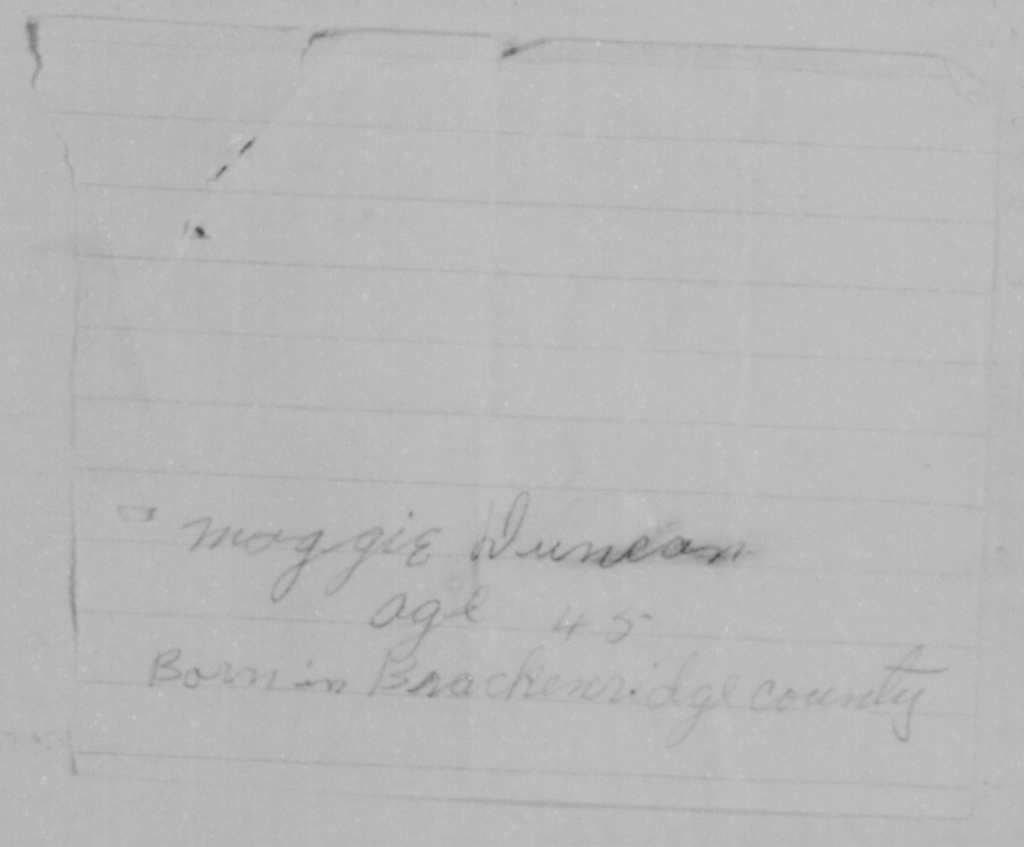 Maggie Duncan
age 45
Born in Brackenridge county